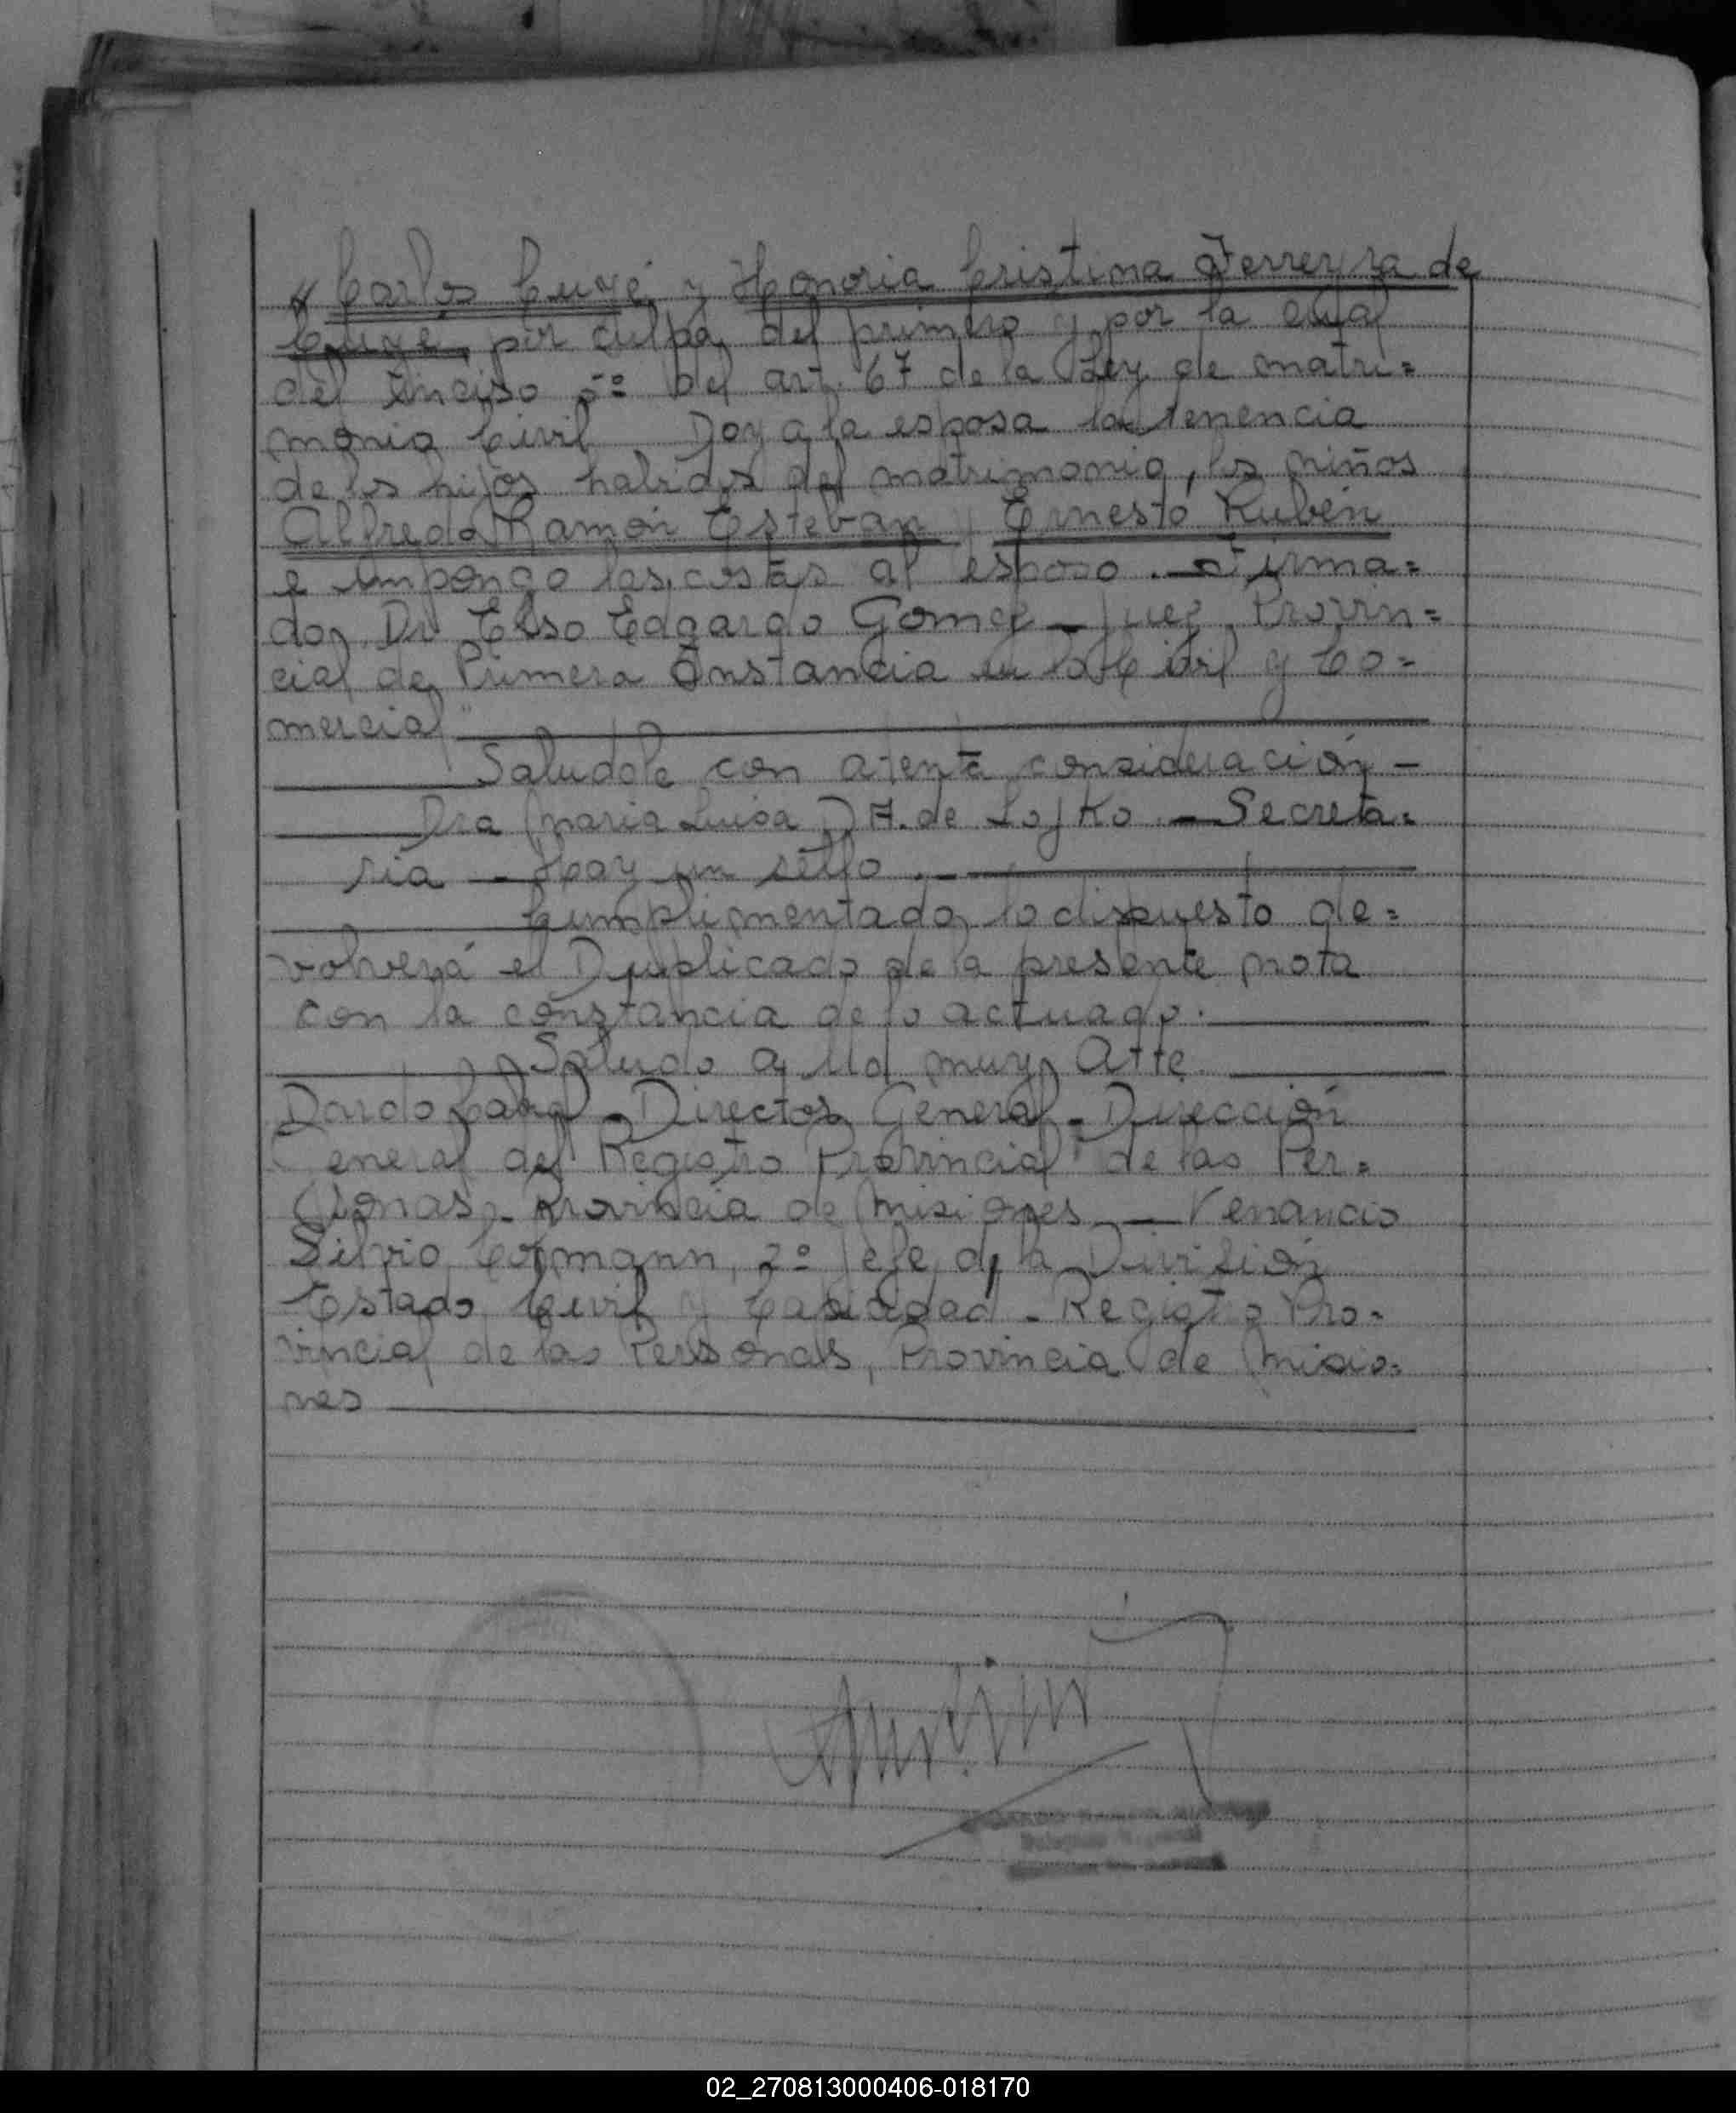 " Carlos Cuyé y Honoria Cristina Ferreyra de
Cuyé, por culpa del primero y por la cual
del inciso 5º del art. 67 de la Ley de matri=
monio Civil Doy a la esposa la tenencia
de los hijos habidos del matrimonio, los niños
Alfredo Ramón Esteban y Ernesto Rubén
e impongo las costas al esposo. - Firma=
do, Dr Elso Edgardo Gomez - Juez Provin=
cial de Primera Instancia en lo Civil y Co=
mercial"
Saludole con atenta consideración -
Dra Maria Luisa D A. de Lojko - Secreta=
ria - Hay un sello. -
Cumplimentado lo dispuesto de=
volverá el Duplicado de la presente nota
con la constancia de lo actuado.
Saludo a Ud muy Atte.
Dardo Cabral - Director General - Dirección
General del Registro Provincial de las Per=
sonas - Provincia de Misiones - Venancio
Silvio, 2º Jefe de la División
Estado Civil y Capacidad - Registro Pro=
vincial de las Personas, Provincia de Misio=
nes
02_270813000406-018170